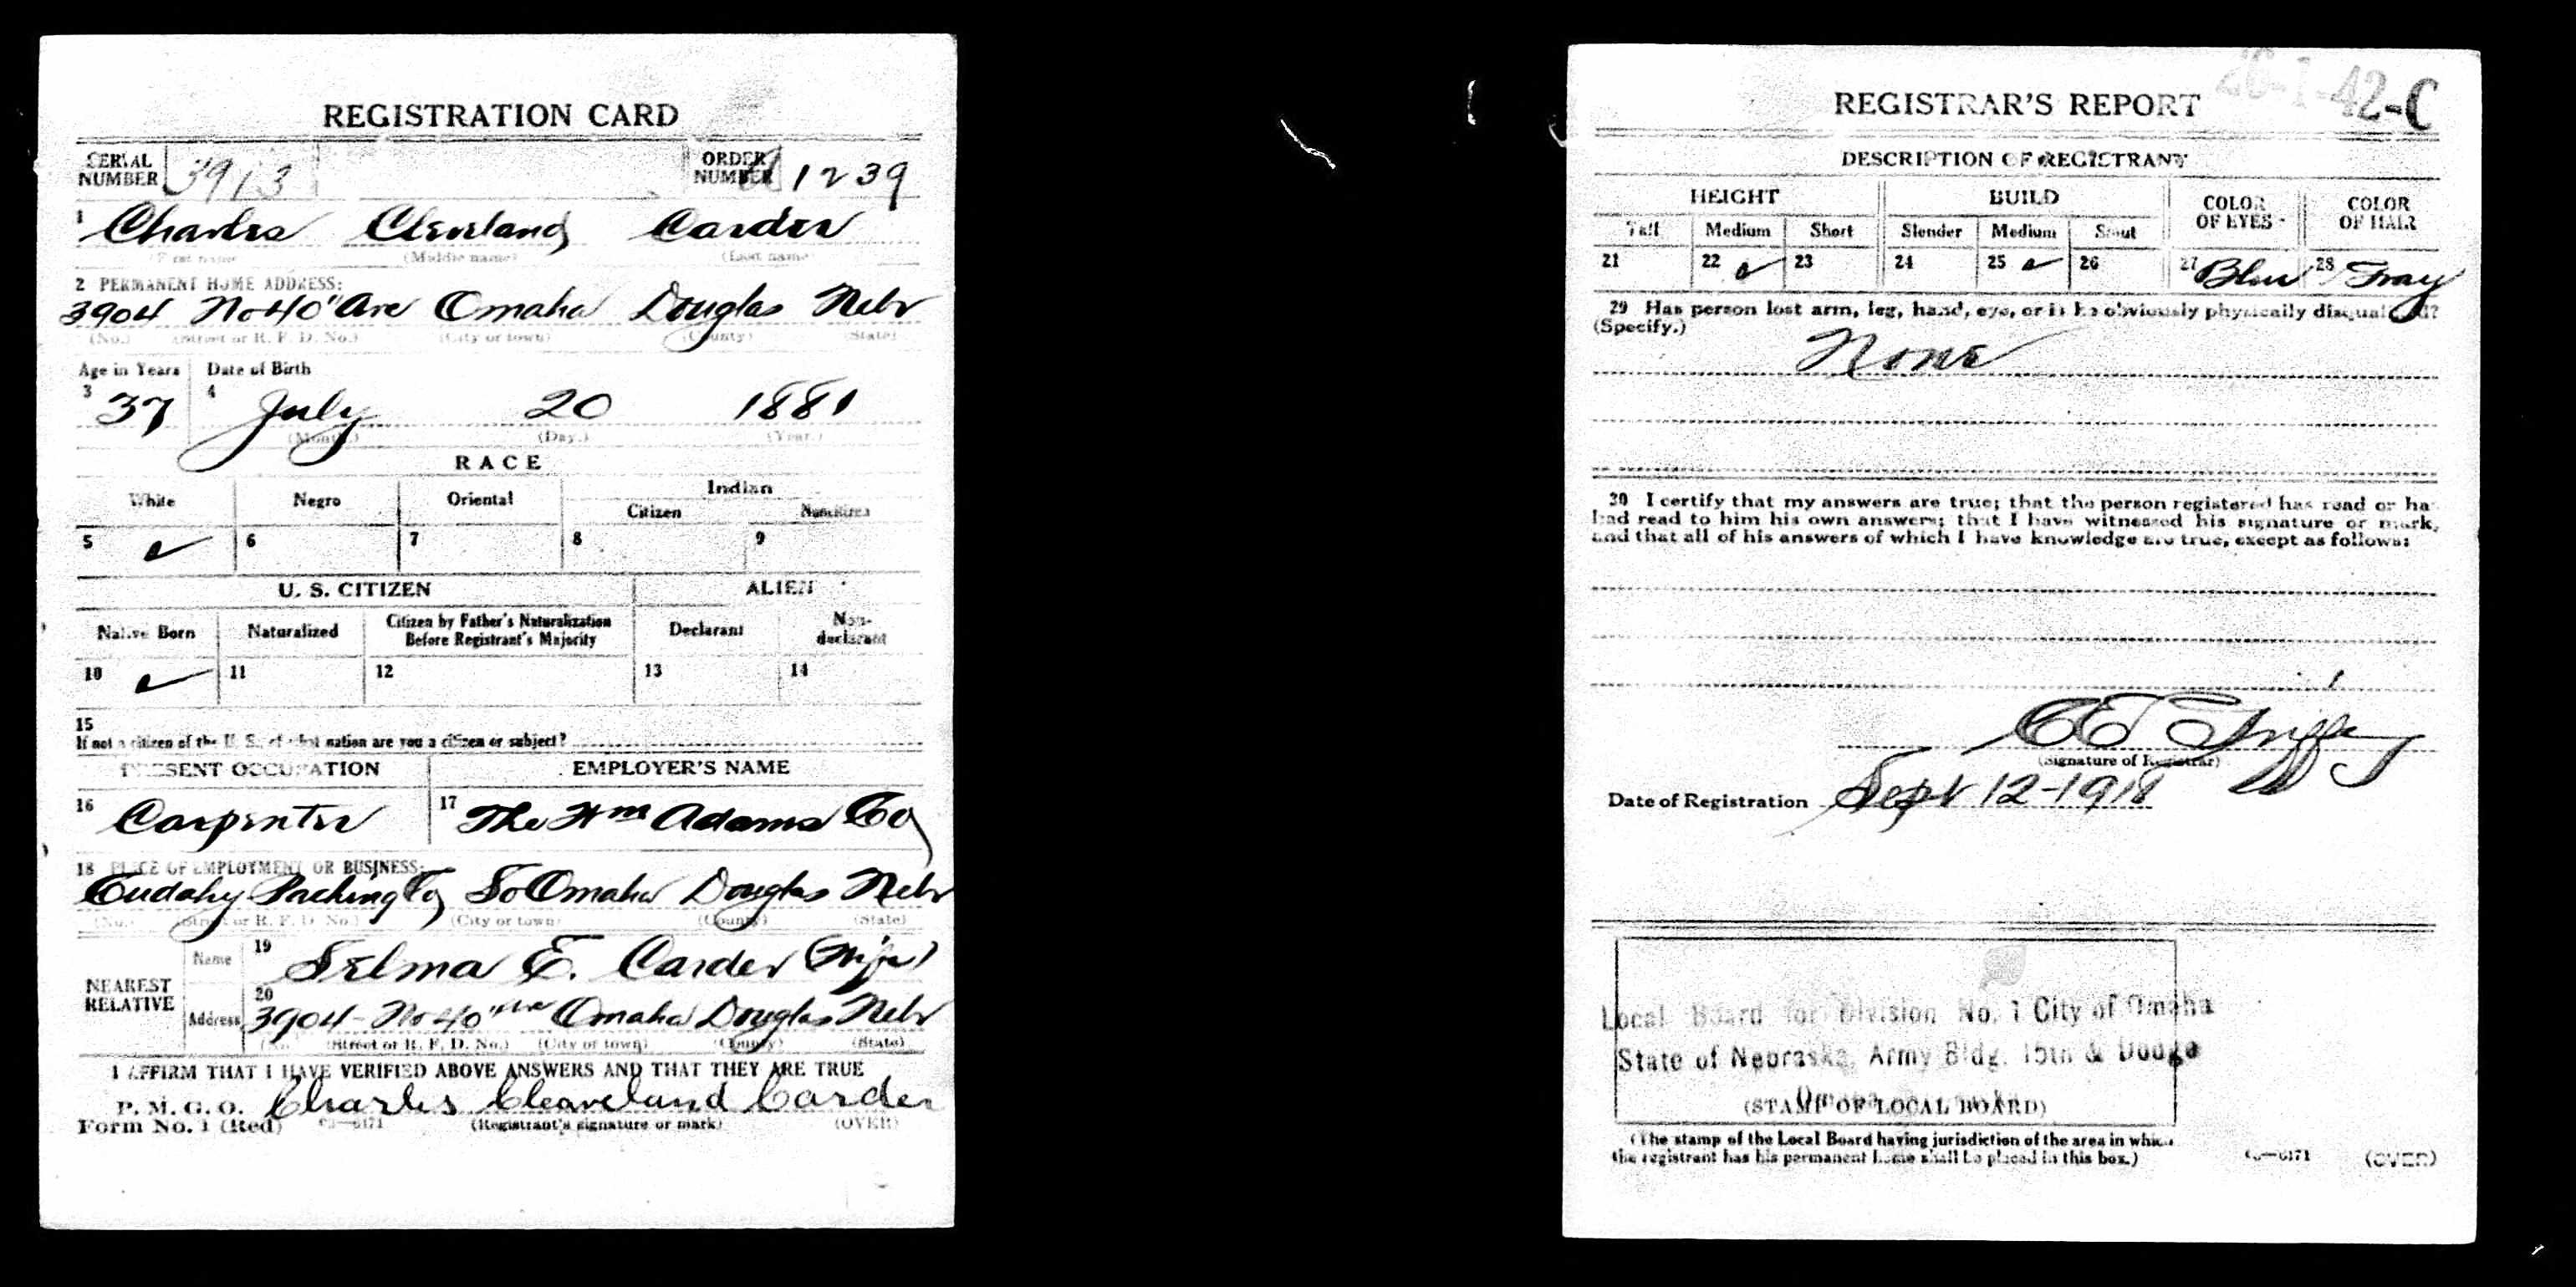 REGISTRATION CARD
SERIAL NUMBER 3913 ORDER NUMBER 1239
1 Charles Cleveland Carder
(First name) (Middle name) (Last name)
2 PERMANENT HOME ADDRESS:
3904 No 40" Ave Omaha Douglas Nebr
(No.) (Street or R. F. D. No.) (City or town) (County) (State)
Age in Years Date of Birth
3 37 4 July 20 1881
(Month.) (Day.) (Year.)
RACE
White Negro Oriental Indian
Citizen Noncitizen
5 6 7 8 9
U. S. CITIZEN ALIEN
Native Born Naturalized Citizen by Father's Naturalization Before Registrant's Majority Declarant Non-declarant
10 11 12 13 14
15
If not a citizen of the U. S., of what nation are you a citizen or subject?
PRESENT OCCUPATION EMPLOYER'S NAME
16 Carpenter 17 The Wm Adams Co
18 PLACE OF EMPLOYMENT OR BUSINESS:
Cudahy Packing Co So Omaha Douglas Nebr
(No.) (Street or R. F. D. No.) (City or town) (County) (State)
NEAREST RELATIVE
Name 19 Selma E. Carder (Wife)
Address 20 3904 - No 40" Ave Omaha Douglas Nebr
(No.) (Street or R. F. D. No.) (City or town) (County) (State)
I AFFIRM THAT I HAVE VERIFIED ABOVE ANSWERS AND THAT THEY ARE TRUE
P. M. G. O.
Form No. 1 (Red) Charles Cleaveland Carder
03—6171 (Registrant's signature or mark) (OVER)
26-1-42-C
REGISTRAR'S REPORT
DESCRIPTION OF REGISTRANT
HEIGHT BUILD COLOR OF EYES COLOR OF HAIR
Tall Medium Short Slender Medium Stout
21 22 23 24 25 26 27 Blue 28 Gray
29 Has person lost arm, leg, hand, eye, or is he obviously physically disqualified?
(Specify.)
None
30 I certify that my answers are true; that the person registered has read or has
had read to him his own answers; that I have witnessed his signature or mark,
and that all of his answers of which I have knowledge are true, except as follows:
(Signature of Registrar)
Date of Registration Sept 12-1918
Local Board for Division No. 1 City of Omaha
State of Nebraska, Army Bldg. 15th & Dodge
Omaha
(STAMP OF LOCAL BOARD)
(The stamp of the Local Board having jurisdiction of the area in which
the registrant has his permanent home shall be placed in this box.)
03—6171 (OVER)